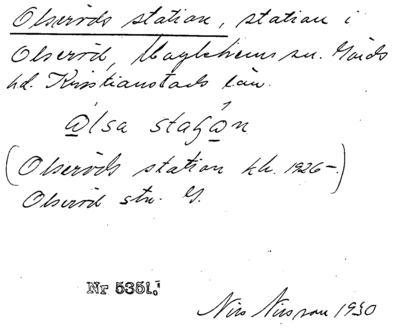 Olseröds station, station i
Olseröd, Maglehems sn. Gärds
hd. Kristianstads län.
a̱'lsa staʃa̱'n
(Olseröds station kb. 1926-.)
Olseröd stn. G.
Nr 5351.
Nils Nilsson 1930